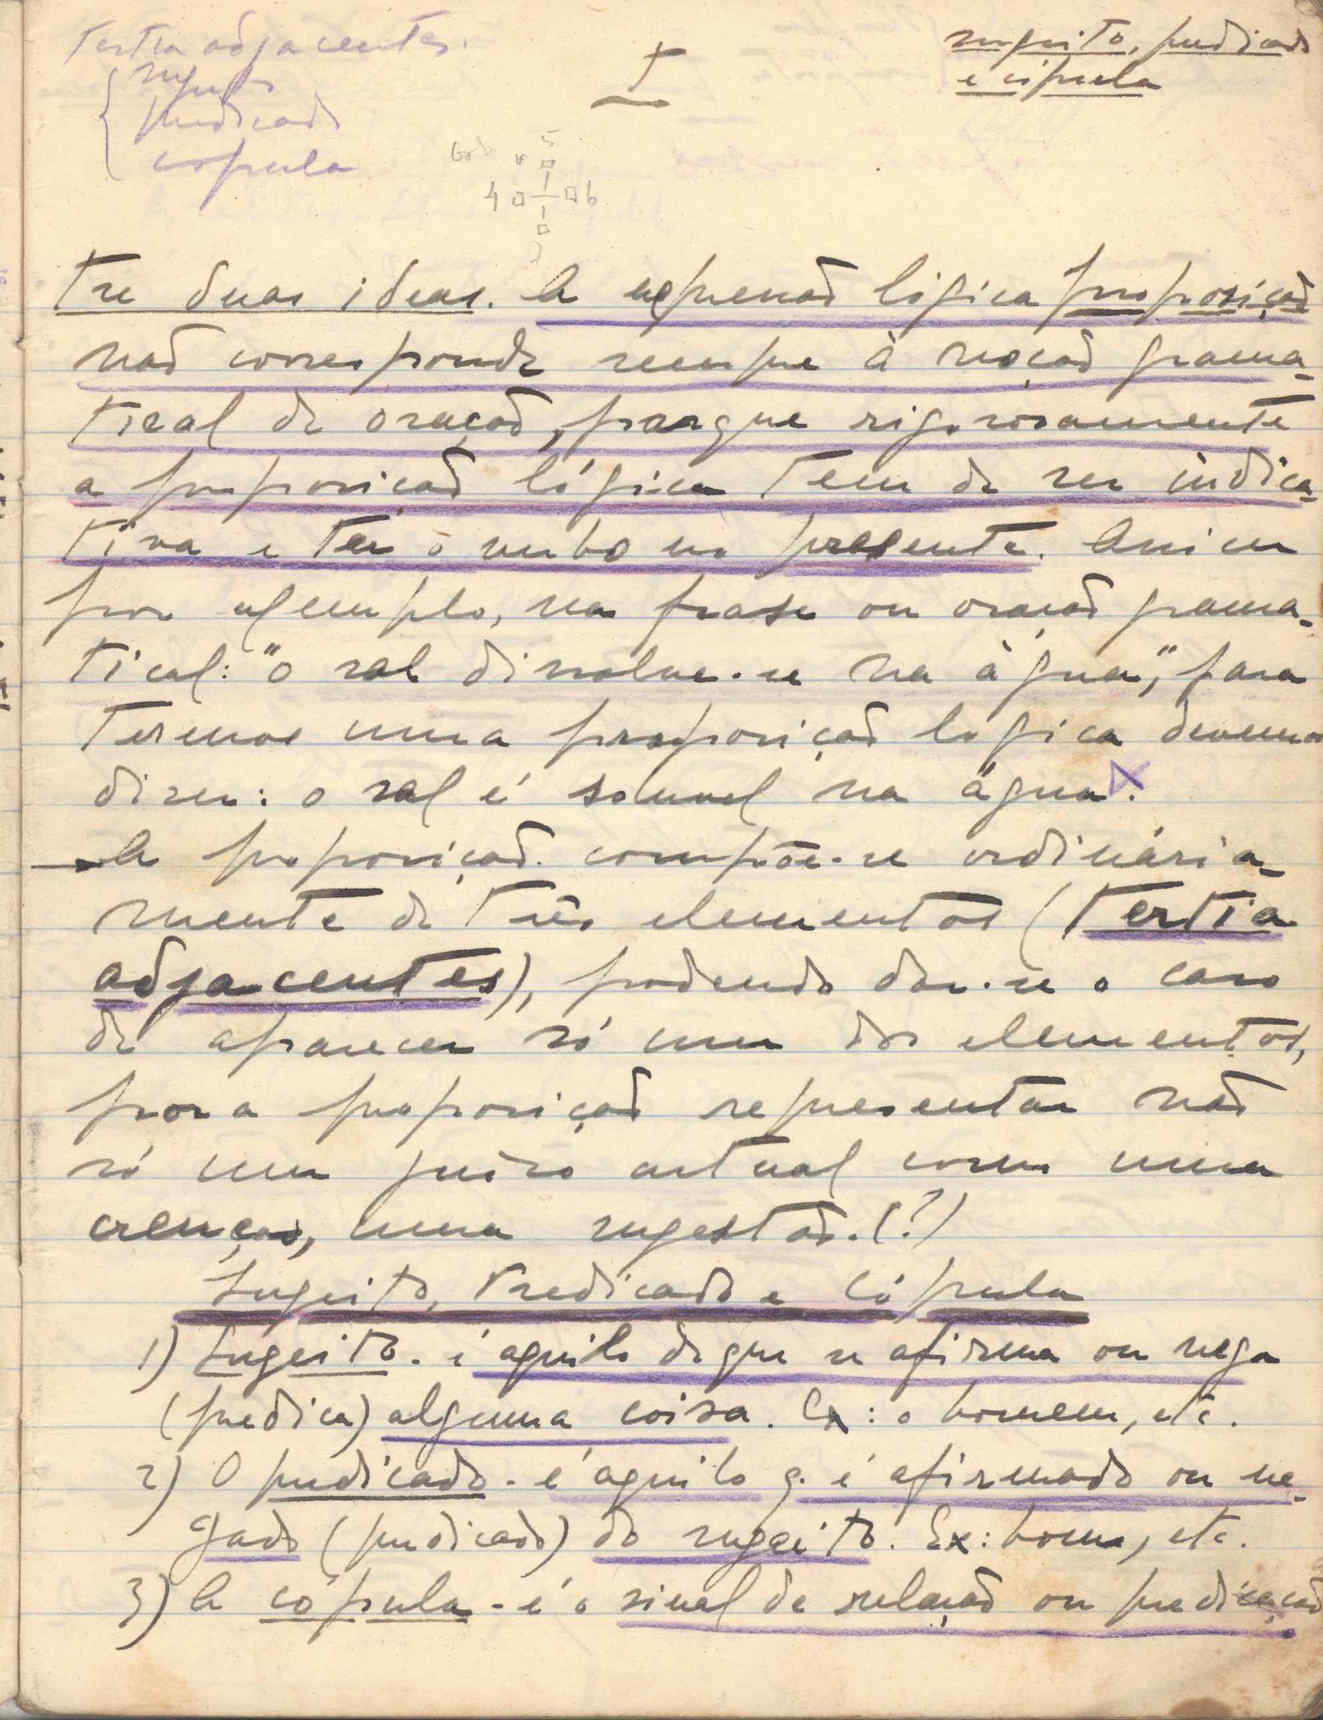 Tertia adjacentes.
sugeito
predicado
copula
sugeito, predicado
e cópula
5
4 6
3
tre duas ideas. A expressão lógica proposição
não corresponde sempre à noção grama-
tical de oração, porque rigorosamente
a proposição lógica tem de ser indica-
tiva e ter o verbo no presente. Assim
por exemplo, na frase ou oração grama-
tical: "o sal dissolve-se na àgua", para
termos uma proposição lógica devemos
dizer: o sal é soluvel na àgua.
A proposição compõe-se ordinària-
mente de três elementos (tertia
adjacentes), podendo dar-se o caso
de aparecer só um dos elementos,
por a proposição representar não
só um juízo actual como uma
crença, uma sugestão. (?)
Sugeito, Predicado e Cópula
1) Sugeito. é aquilo de que se afirma ou nega
(predica) alguma coisa. Ex: o homem, etc.
2) O predicado - é aquilo q. é afirmado ou ne-
gado (predicado) do sugeito. Ex: homem, etc.
3) A cópula - é o sinal de relação ou predicação